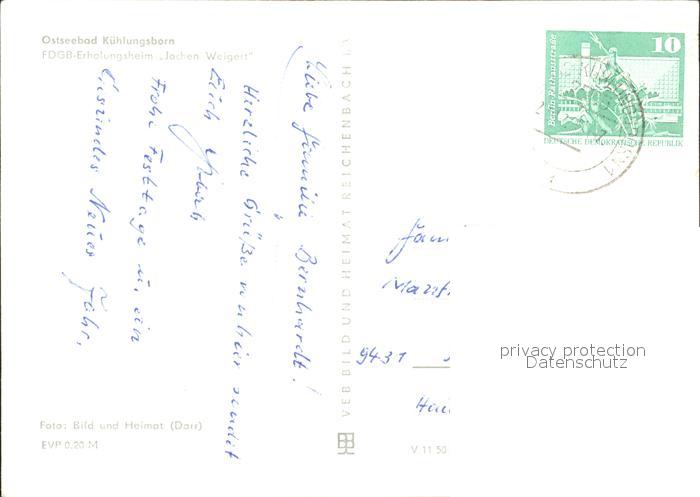 Ostseebad Kühlungsborn
FDGB-Erholungsheim „Jochen Weigert"
Liebe Familie Bernhardt!
Herzliche Grüße von hier sendet
Euch
Frohe Festtage u. ein
Neues Jahr.
Foto: Bild und Heimat (Darr)
EVP 0,20 M
VEB BILD UND HEIMAT REICHENBACH I.V
V 11 50
10
Berlin, Rathausstraße
DEUTSCHE DEMOKRATISCHE REPUBLIK
Fam
Manf
9431
Hau
privacy protection
Datenschutz